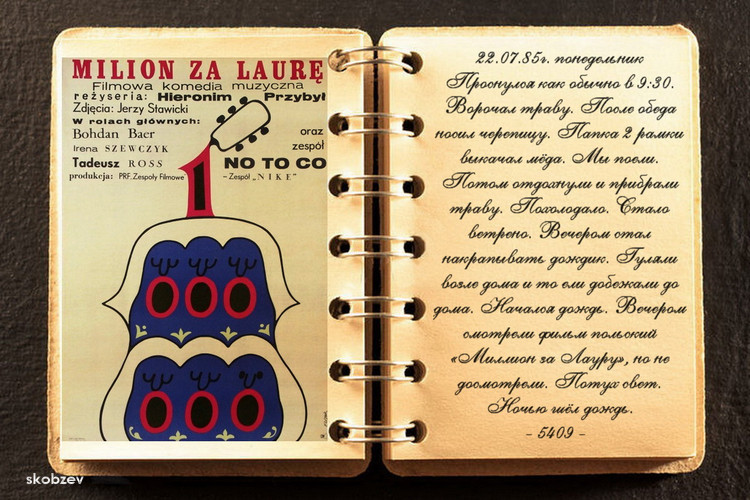 MILION ZA LAURĘ
Filmowa komedia muzyczna
reżyseria: Hieronim Przybył
Zdjęcia: Jerzy Stawicki
W rolach głównych:
Bohdan Baer oraz
Irena SZEWCZYK zespół
Tadeusz ROSS NO TO CO
produkcja: PRF. Zespoły Filmowe – Zespół „NIKE”
1
22.07.85г. понедельник
Проснулся как обычно в 9:30.
Ворочал траву. После обеда
носил черепицу. Папка 2 рамки
выкачал мёда. Мы поели.
Потом отдохнули и прибрали
траву. Похолодало. Стало
ветрено. Вечером стал
накрапывать дождик. Гуляли
возле дома и то ели добежали до
дома. Начался дождь. Вечером
смотрели фильм польский
«Миллион за Лауру», но не
досмотрели. Потух свет.
Ночью шёл дождь.
- 5409 -
skobzev